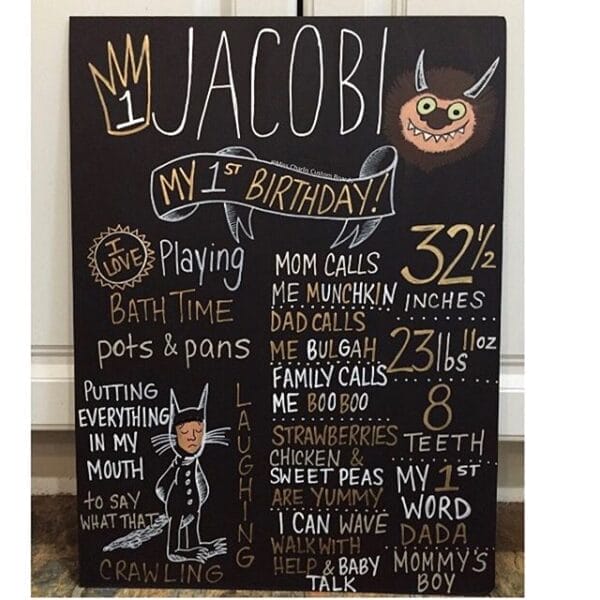 1 JACOBI
MY 1ST BIRTHDAY!
I
LOVE
Playing
BATH TIME
pots & pans
PUTTING
EVERYTHING
IN MY
MOUTH
to SAY
WHAT THAT
CRAWLING
LAUGHING
MOM CALLS
ME MUNCHKIN
DAD CALLS
ME BULGAH
FAMILY CALLS
ME BOO BOO
STRAWBERRIES
CHICKEN &
SWEET PEAS
ARE YUMMY
I CAN WAVE
WALK WITH
HELP & BABY
TALK
32 1/2
INCHES
23lbs 11oz
8
TEETH
MY 1ST
WORD
DADA
MOMMY'S
BOY